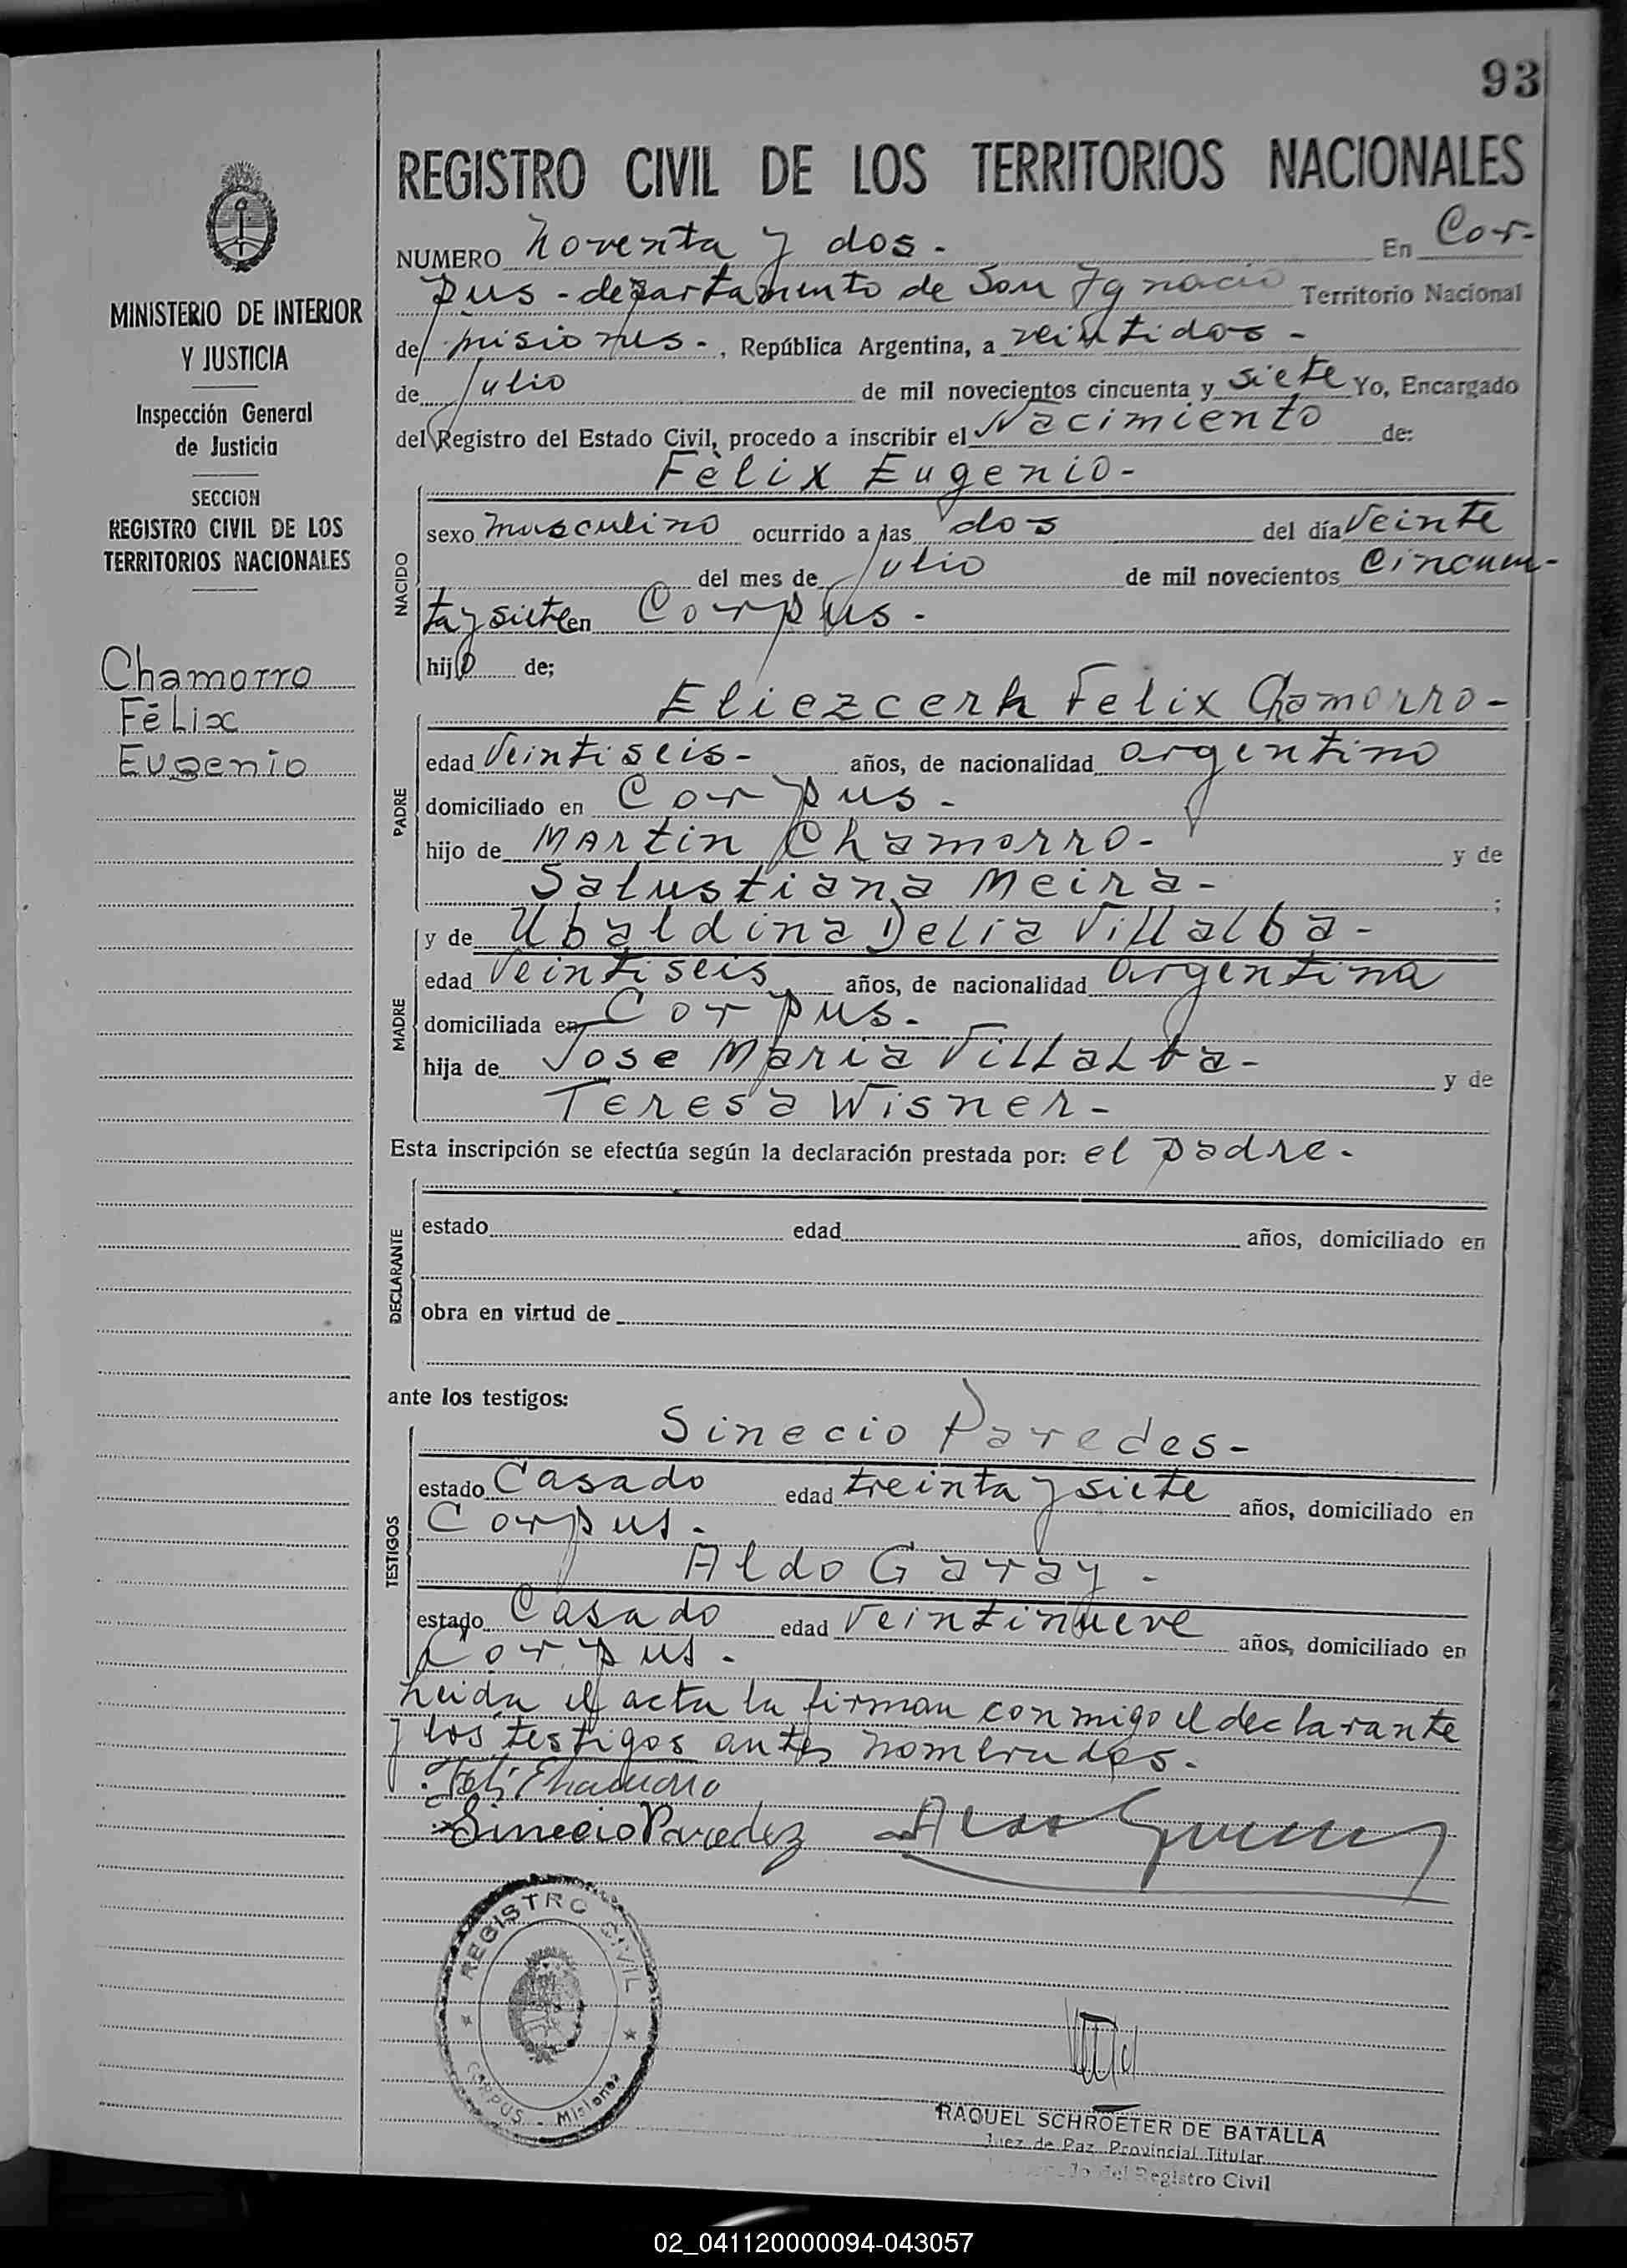 93
REGISTRO CIVIL DE LOS TERRITORIOS NACIONALES
NUMERO Noventa y dos - En Cor-
pus - departamento de San Ignacio Territorio Nacional
de misiones -, República Argentina, a veintidos -
de Julio de mil novecientos cincuenta y siete Yo, Encargado
del Registro del Estado Civil, procedo a inscribir el Nacimiento de:
Fèlix Eugenio -
NACIDO
sexo masculino ocurrido a las dos del día veinte
del mes de Julio de mil novecientos cincuen-
ta y siete en Corpus -
hijo de;
Eliezcerh Felix Chamorro -
PADRE
edad Veintiseis - años, de nacionalidad argentino
domiciliado en Corpus -
hijo de Martin Chamorro - y de
Salustiana Meira - ;
y de Ubaldina Delia Villalba -
MADRE
edad Veintiseis años, de nacionalidad argentina
domiciliada en Corpus -
hija de Jose Maria Villalba - y de
Teresa Wisner -
Esta inscripción se efectúa según la declaración prestada por: el padre -
DECLARANTE
estado edad años, domiciliado en
obra en virtud de
ante los testigos:
Sinecio Paredes -
TESTIGOS
estado Casado edad treinta y siete años, domiciliado en
Corpus -
Aldo Garay -
estado Casado edad veintinueve años, domiciliado en
Corpus -
Leida el acta la firman conmigo el declarante
y los testigos antes nombrados -
Chamorro
Sinecio Paredez
MINISTERIO DE INTERIOR
Y JUSTICIA
Inspección General
de Justicia
SECCION
REGISTRO CIVIL DE LOS
TERRITORIOS NACIONALES
Chamorro
Félix
Eugenio
REGISTRO CIVIL
CORPUS - Misiones
RAQUEL SCHROETER DE BATALLA
Juez de Paz Provincial Titular
del Registro Civil
02_041120000094-043057